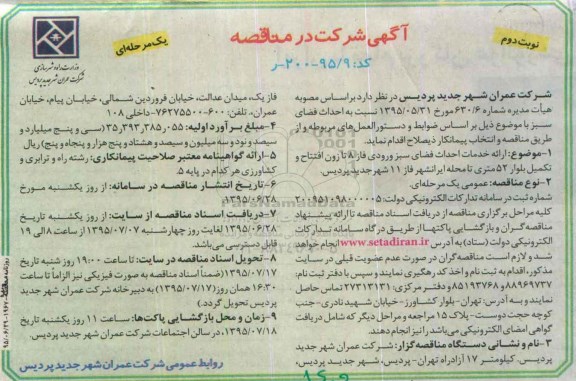 آگهی شرکت در مناقصه
نوبت دوم
یک مرحله‌ای
کد: ۹۵/۹-۲۰۰-ر
وزارت راه و شهرسازی
شرکت عمران شهر جدید پردیس
شرکت عمران شهر جدید پردیس در نظر دارد بر اساس مصوبه
هیأت مدیره شماره ۶۳۰/۶ مورخ ۱۳۹۵/۰۵/۳۱ نسبت به احداث فضای
سبز با موضوع ذیل بر اساس ضوابط و دستورالعمل‌های مربوطه و از
طریق مناقصه و انتخاب پیمانکار ذیصلاح اقدام نماید.
۱-موضوع: ارائه خدمات احداث فضای سبز ورودی فاز ۸ تا زون افتتاح و
تکمیل بلوار ۵۲ متری تا محله ایرانشهر فاز ۱۱ شهر جدید پردیس.
۲-نوع مناقصه: عمومی یک مرحله‌ای.
شماره ثبت در سامانه تدارکات الکترونیکی دولت: ۲۰۰۹۵۱۰۹۸۰۰۰۰۰۵
کلیه مراحل برگزاری مناقصه از دریافت اسناد مناقصه تا ارائه پیشنهاد
مناقصه گران و بازگشایی پاکتها از طریق درگاه سامانه تدارکات
الکترونیکی دولت (ستاد) به آدرس www.setadiran.ir انجام خواهد
شد و لازم است مناقصه‌گران در صورت عدم عضویت قبلی در سایت
مذکور، اقدام به ثبت نام و اخذ کد رهگیری نمایند و سپس با دفتر ثبت نام:
۸۸۹۶۹۷۳۷ و ۸۵۱۹۳۷۶۸ و دفتر مرکزی: ۲۷۳۱۳۱۳۱ تماس حاصل
نمایند و به آدرس: تهران- بلوار کشاورز- خیابان شهید نادری- جنب
کوچه حجت دوست- پلاک ۱۵ مراجعه و مراحل دیگر که شامل دریافت
گواهی امضای الکترونیکی می‌باشد را نیز انجام دهند.
۳-نام و نشانی دستگاه مناقصه گزار: شرکت عمران شهر جدید
پردیس. کیلومتر ۱۷ آزادراه تهران- پردیس، شهر جدید پردیس،
فاز یک، میدان عدالت، خیابان فروردین شمالی، خیابان پیام، خیابان
عمران، تلفن: ۶۰۰-۷۶۲۷۵۵۰۰ داخلی ۱۰۸
۴-مبلغ برآورد اولیه: ۳۵,۳۹۳,۳۸۵,۰۵۵ (سی و پنج میلیارد و
سیصد و نود و سه میلیون و سیصد و هشتاد و پنج هزار و پنجاه و پنج) ریال
۵-ارائه گواهینامه معتبر صلاحیت پیمانکاری: رشته راه و ترابری و
کشاورزی هر کدام در پایه ۵.
۶-تاریخ انتشار مناقصه در سامانه: از روز یکشنبه مورخ
۱۳۹۵/۰۶/۲۸
۷-دریافت اسناد مناقصه از سایت: از روز یکشنبه تاریخ
۱۳۹۵/۰۶/۲۸ لغایت روز چهارشنبه ۱۳۹۵/۰۷/۰۷ از ساعت ۸ الی ۱۹
قابل دسترسی می‌باشد.
۸-تحویل اسناد مناقصه در سایت: تا ساعت ۱۹:۰۰ روز شنبه تاریخ
۱۳۹۵/۰۷/۱۷ (ضمناً اسناد مناقصه به صورت فیزیکی نیز الزاماً تا ساعت
۱۶:۳۰ همان روز (۱۳۹۵/۰۷/۱۷) به دبیرخانه شرکت عمران شهر جدید
پردیس تحویل گردد.)
۹-زمان و محل بازگشایی پاکت‌ها: ساعت ۱۱ روز یکشنبه تاریخ
۱۳۹۵/۰۷/۱۸، در سالن اجتماعات شرکت عمران شهر جدید پردیس.
روابط عمومی شرکت عمران شهر جدید پردیس